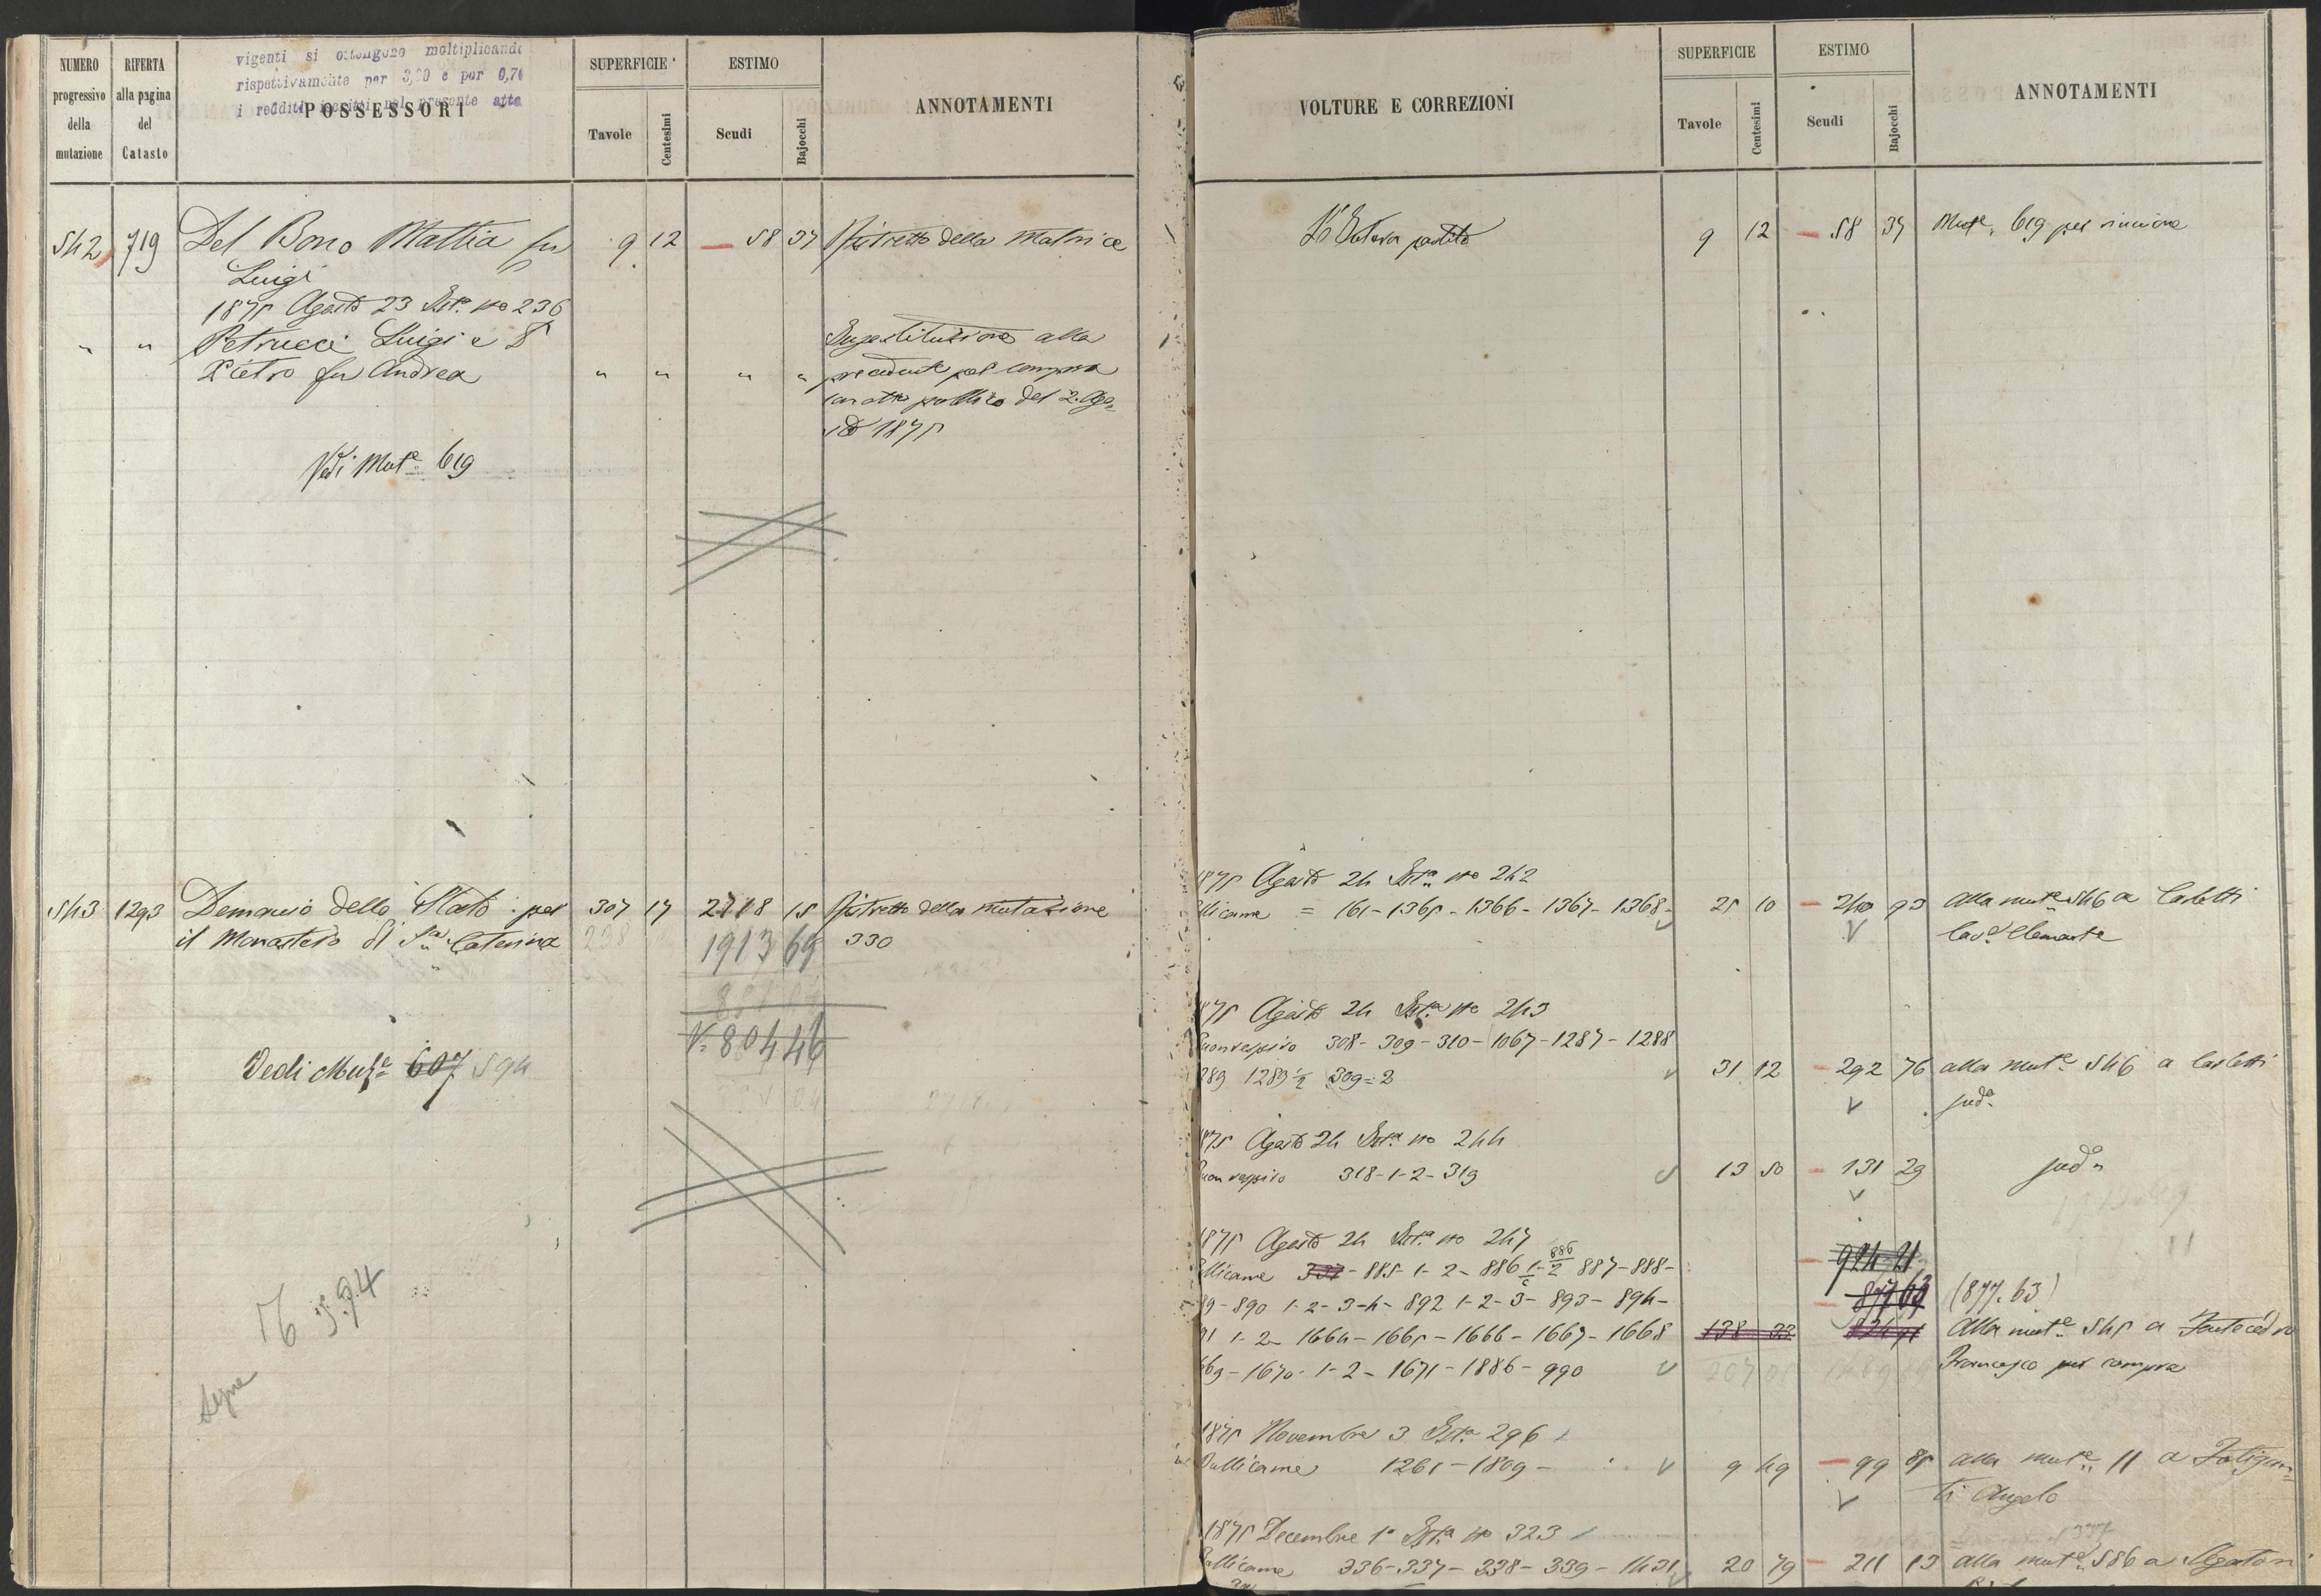 NUMERO
progressivo
della
mutazione
RIFERTA
alla pagina
del
Catasto
vigenti si ottengono moltiplicando
rispettivamente per 3,20 e per 0,70
i redditi iscritti nel presente atto
POSSESSORI
SUPERFICIE
Tavole
Centesimi
ESTIMO
Scudi
Bajocchi
ANNOTAMENTI
542 719 Del Bono Mattia fu 9 12 58 37 Ristretto della Matrice
Luigi
1875 Agosto 23 Ista. No 236
" " Petrucci Luigi e
Pietro fu Andrea " " " "
alla
precedente per compra
con atto pubblico del 2. Ago
sto 1875
Vedi Mute. 619
543 1293 Demanio dello Stato per 307 17 2718 15 Ristretto della mutazione
il Monastero di Sta. Caterina 238 1913 69 330
V. 804 46
Vedi Mute. 607 594
16 5.94
segue
VOLTURE E CORREZIONI
SUPERFICIE
Tavole
Centesimi
ESTIMO
Scudi
Bajocchi
ANNOTAMENTI
L'Intera partita 9 12 58 37 Mute. 619 per riunione
1875 Agosto 24 Ista. No 242
llicame = 161 - 1365 - 1366 - 1367 - 1368 - 25 10 240 93 alla mute. 546 a Carletti
Cave. Clemente
1875 Agosto 24 Ista. No 243
308 - 309 - 310 - 1067 - 1287 - 1288
289 1289 1/2 309 = 2 31 12 292 76 alla mute. 546 a Carletti
sude.
1875 Agosto 24 Ista. No 244
318 - 1 - 2 - 319 13 50 131 29 sudo.
1875 Agosto 24 Ista. No 247
924 21
llicame 337 - 885 - 1 - 2 - 886 1 - 886/2 887 - 888 -
877 63 (877.63)
89 - 890 1 - 2 - 3 - 4 - 892 1 - 2 - 3 - 893 - 894 -
91 1 - 2 - 1664 - 1665 - 1666 - 1667 - 1668 138 33 Alla mute. 545 a
669 - 1670 - 1 - 2 - 1671 - 1886 - 990 Francesco per compra
1875 Novembre 3 Ista. 296
Bullicame 1261 - 1809 - 9 49 99 85 alla mute. 11 a Fatigan
ti Angelo
1875 Decembre 1° Ista. No 323
Bullicame 336 - 337 - 338 - 339 - 1431 20 79 211 13 alla mute. 586 a